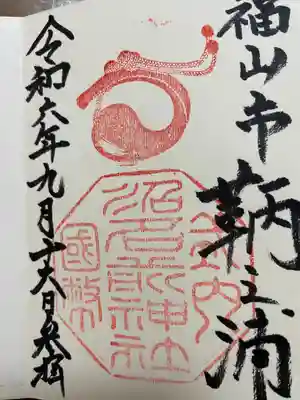 福山市鞆之浦
式内
沼名前神社
國幣
令和六年九月十六日参拝